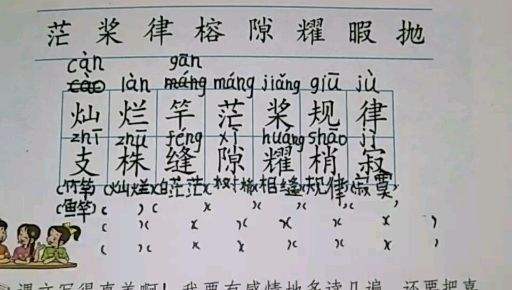 茫 桨 律 榕 隙 耀 暇 抛
càn gān
làn máng jiǎng giū jù
灿 烂 竿 茫 桨 规 律
zhī zhū féng xì huāng shāo jì
支 株 缝 隙 耀 梢 寂
(竹竿)(灿烂)(白茫茫)(树梢)(相缝)(规律)(寂寞)
(鱼竿)( )( )( )( )( )
课文写得真美啊！我要有感情地多读几遍，还要把喜